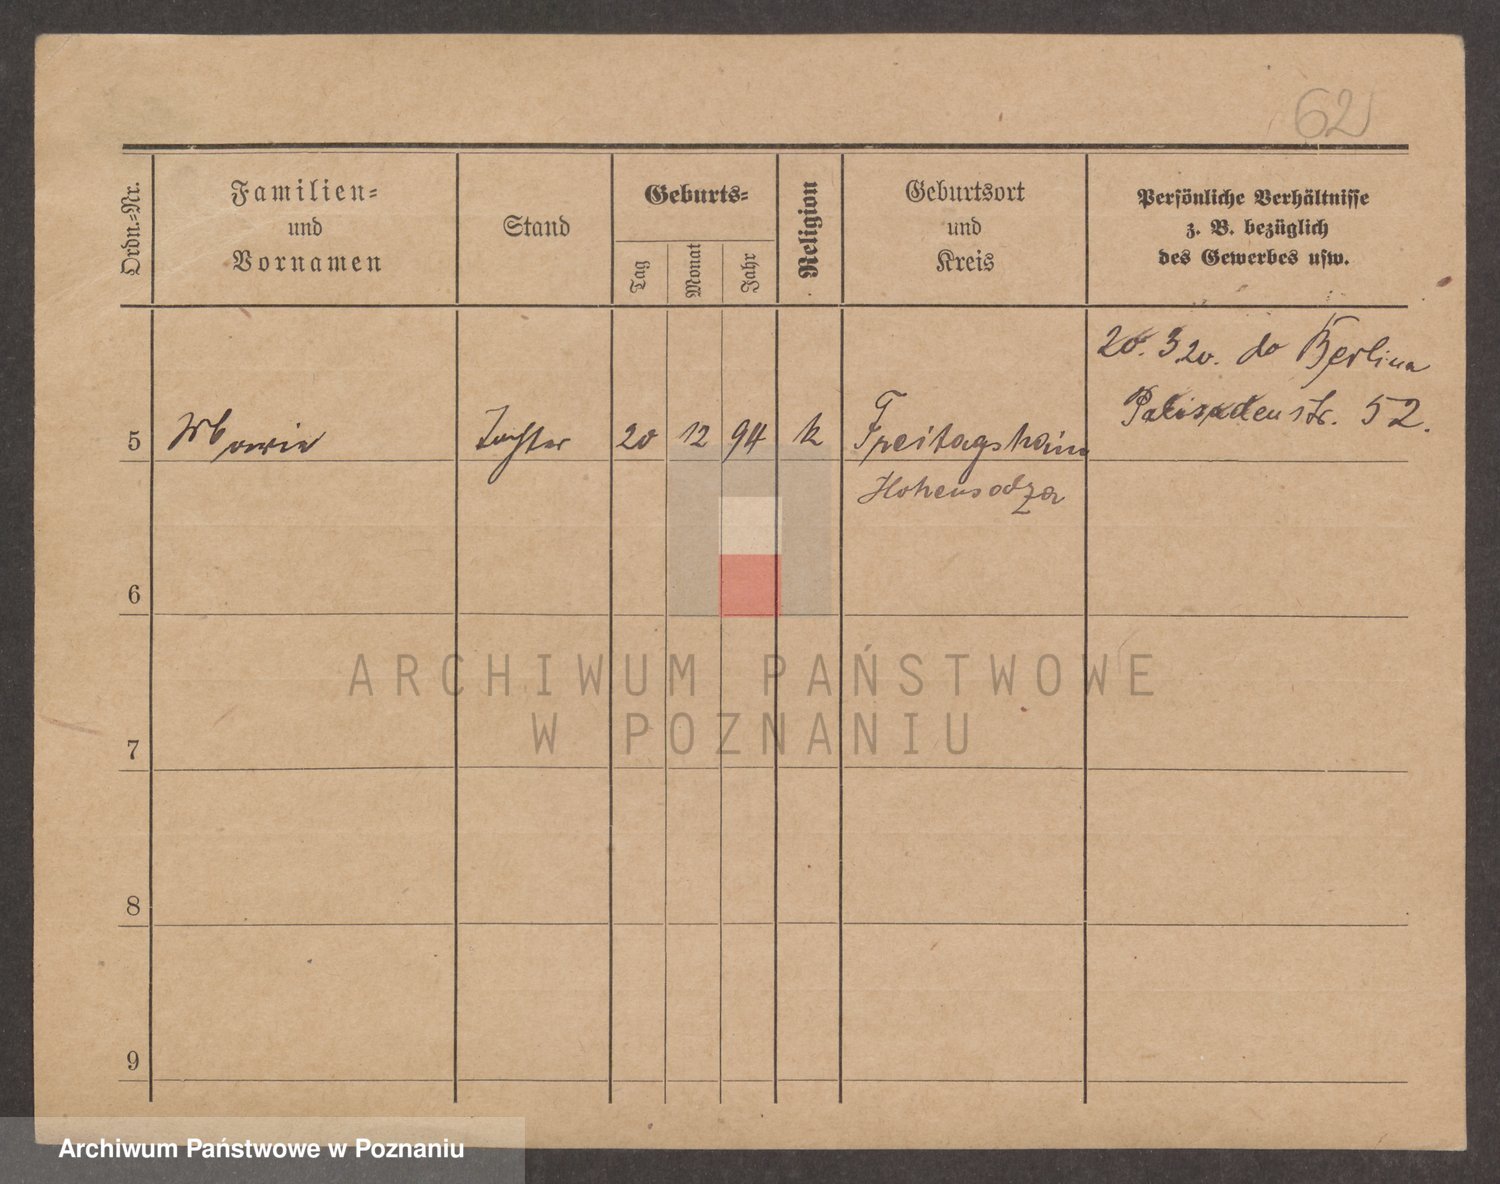 62
Ordn.-Nr.
Familien-
und
Vornamen
Stand
Geburts-
Tag
Monat
Jahr
Religion
Geburtsort
und
Kreis
Persönliche Verhältnisse
z. B. bezüglich
des Gewerbes usw.
20. 3 20. do Berlina
Palisadenstr. 52.
5 Marie Tochter 20 12 94 k Freitagshain
Hohensalza
6
7
8
9
ARCHIWUM PAŃSTWOWE
W POZNANIU
Archiwum Państwowe w Poznaniu